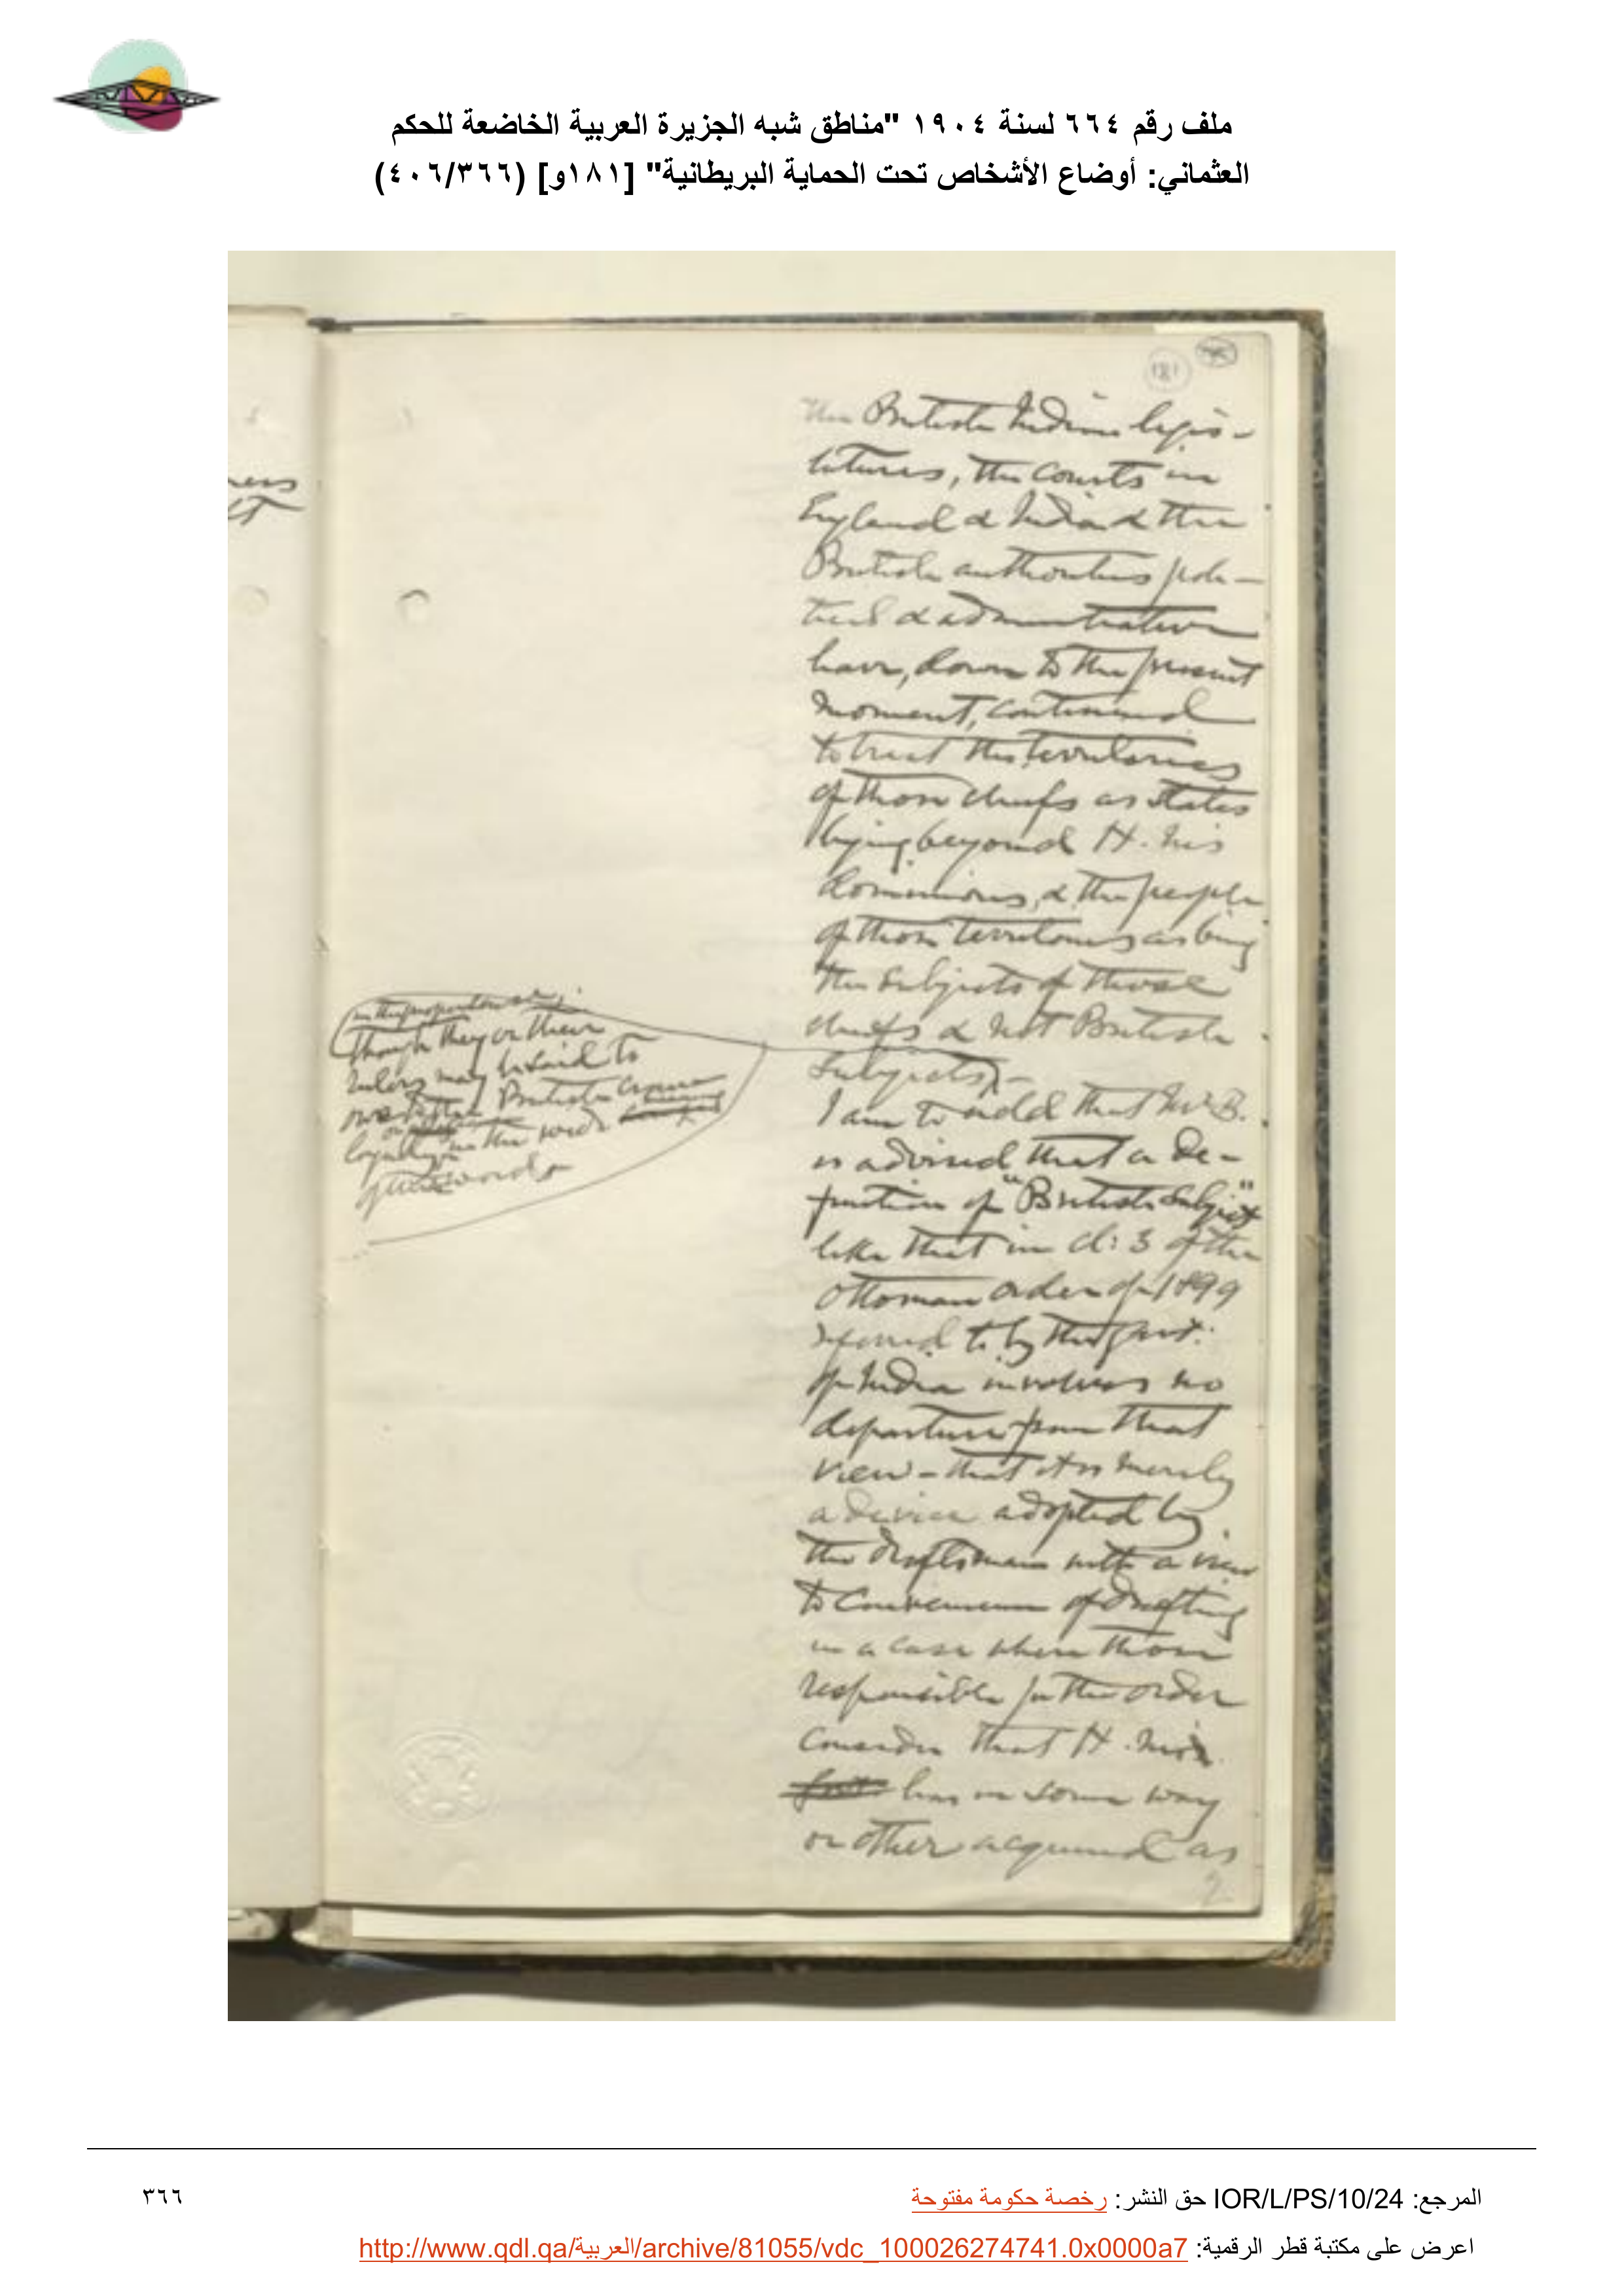 ملف رقم ٦٦٤ لسنة ١٩٠٤ "مناطق شبه الجزيرة العربية الخاضعة للحكم
العثماني: أوضاع الأشخاص تحت الحماية البريطانية" [١٨١و] (٤٠٦/٣٦٦)
181
the British Indian legis-
latures, the Courts in
England & India & the
British authorities poli-
tical & administrative
have, down to the present
moment, continued
to treat the territories
of those chiefs as states
lying beyond H. M's
dominions, & the people
of those territories as being
the subjects of those
chiefs & not British
subjects,-
in the proper sense,
though they or their
rulers may be said to
owe British Crown
loyalty in the wide
of words
I am to add that Mr B.
is advised that a de-
finition of "British Subject"
like that in cl: 3 of the
Ottoman Order of 1899
referred to by the Govt.
of India involves no
departure from that
view - that it is merely
a device adopted by
the draftsman with a view
to convenience of drafting
in a case where those
responsible for the order
consider that H. M's
has in some way
or other acquired as
المرجع: IOR/L/PS/10/24 حق النشر: رخصة حكومة مفتوحة
٣٦٦
اعرض على مكتبة قطر الرقمية: http://www.qdl.qa/العربية/archive/81055/vdc_100026274741.0x0000a7